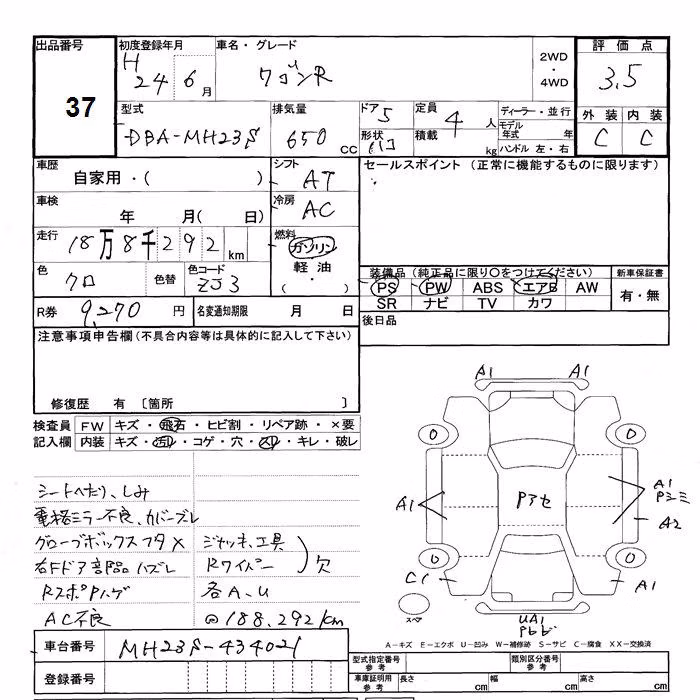 出品番号
37
初度登録年月
H 24 6月
車名・グレード
ワゴンR
2WD
・
4WD
評価点
3.5
型式
DBA-MH23S
排気量
650 CC
ドア 5
形状 ハコ
定員 4 人
積載 kg
ディーラー・並行
モデル年式 年
ハンドル 左・右
外装 内装
C C
車歴
自家用・( )
シフト AT
セールスポイント (正常に機能するものに限ります)
車検
年 月( 日)
冷房 AC
走行 18万8千292km
燃料
ガソリン
軽油
・( )
色 クロ 色替 色コード ZJ3
装備品(純正品に限り○をつけてください)
PS PW ABS エアB AW
SR ナビ TV カワ
新車保証書
有・無
R券 9,270円
名変通知期限 月 日
後日品
注意事項申告欄(不具合内容等は具体的に記入して下さい)
修復歴 有〔箇所 〕
検査員記入欄
FW キズ・飛石・ヒビ割・リペア跡・×要
内装 キズ・汚レ・コゲ・穴・スレ・キレ・破レ
シートへたり、しみ
電格ミラー不良、カバーズレ
グローブボックスフタ× ジャッキ、工具
右Fドア部品ハズレ Rワイパー 欠
RスポPハゲ 各A、U
AC不良 @188,292km
A1 A1
0 0
A1 Pアセ A1 Pミミ
A2
0 0
C1 A1
スペア
UA1
A-キズ E-エクボ U-凹み W-補修跡 S-サビ C-腐食 XX-交換済
車台番号 MH23S-434021
登録番号
型式指定番号 参考
類別区分番号 参考
車庫証明用 参考
長さ cm 幅 cm 高さ cm